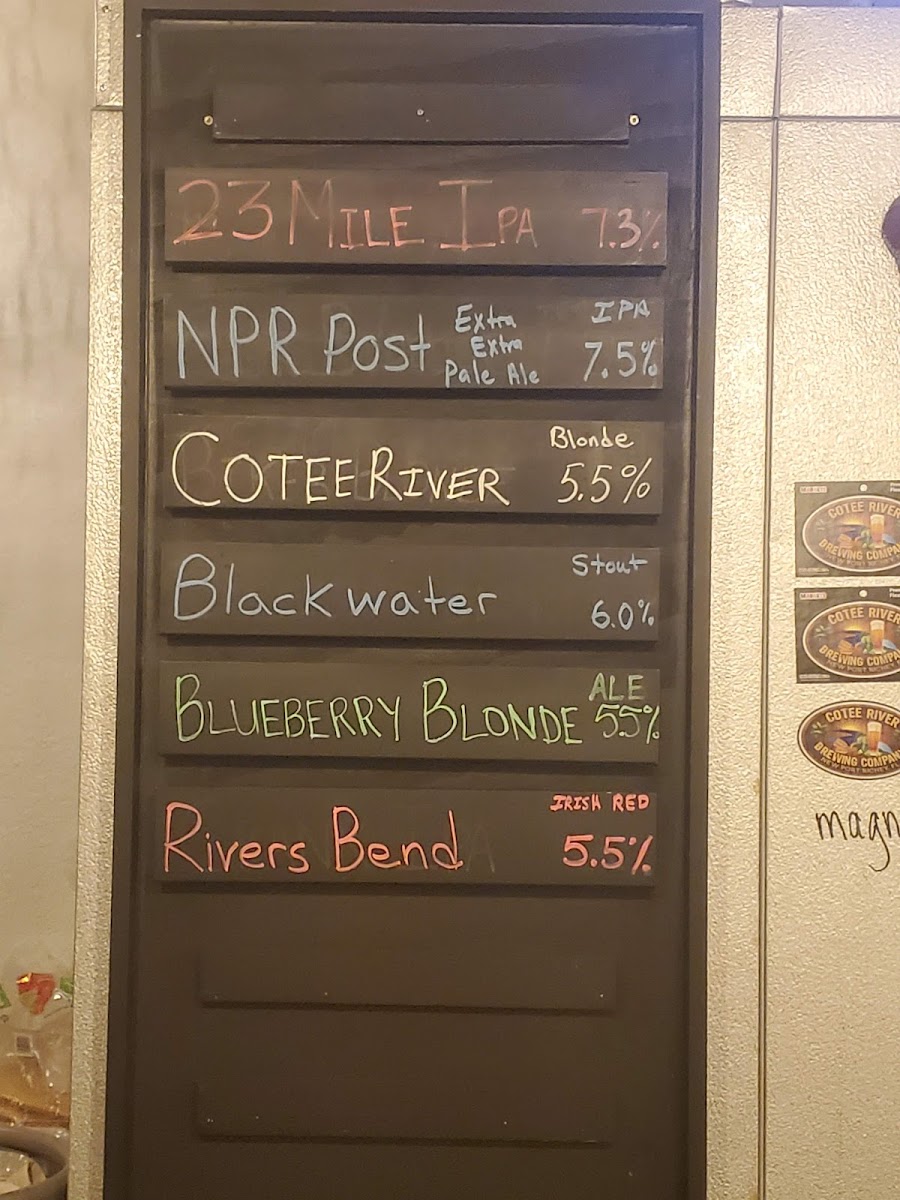 23 MILE IPA 7.3%
NPR Post Extra Extra Pale Ale IPA 7.5%
COTEE RIVER Blonde 5.5%
Blackwater Stout 6.0%
BLUEBERRY BLONDE ALE 5.5%
Rivers Bend IRISH RED 5.5%
COTEE RIVER
BREWING COMPA
COTEE RIVER
BREWING COMPA
NEW PORT RICHEY
COTEE RIVER
BREWING COMPAN
NEW PORT RICHEY, FL
magn